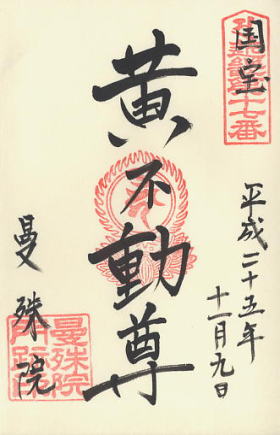 国宝
平成二十五年
十一月九日
黄不動尊
曼殊院
曼殊院
門跡